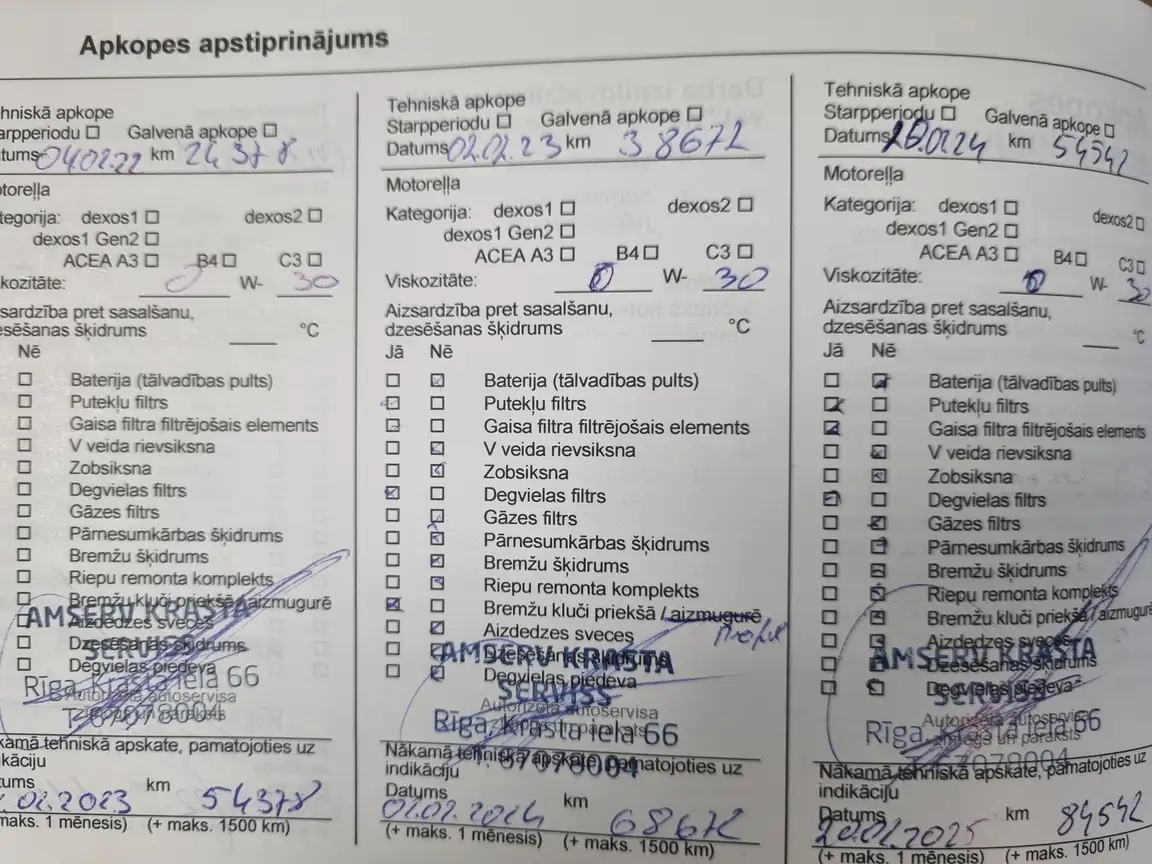 Apkopes apstiprinājums
hniskā apkope
arpperiodu Galvenā apkope
tums 04.02.22 km 24378
otoreļļa
tegorija: dexos1 dexos2
dexos1 Gen2
ACEA A3 B4 C3
kozitāte: 0 W- 30
sardzība pret sasalšanu,
esēšanas šķidrums °C
Nē
Baterija (tālvadības pults)
Putekļu filtrs
Gaisa filtra filtrējošais elements
V veida rievsiksna
Zobsiksna
Degvielas filtrs
Gāzes filtrs
Pārnesumkārbas šķidrums
Bremžu šķidrums
Riepu remonta komplekts
Bremžu kluči priekšā / aizmugurē
Aizdedzes sveces
Dzesēšanas šķidrums
Degvielas piedeva
AMSERV KRASTA
SERVISS
Rīga, Krasta iela 66
Autorizēta autoservisa
zīmogs un paraksts
T. 67078004
kamā tehniskā apskate, pamatojoties uz
ikāciju
tums .02.2023 km 54378
maks. 1 mēnesis) (+ maks. 1500 km)
Tehniskā apkope
Starpperiodu Galvenā apkope
Datums 02.02.23 km 38672
Motoreļļa
Kategorija: dexos1 dexos2
dexos1 Gen2
ACEA A3 B4 C3
Viskozitāte: 0 W- 30
Aizsardzība pret sasalšanu,
dzesēšanas šķidrums °C
Jā Nē
Baterija (tālvadības pults)
Putekļu filtrs
Gaisa filtra filtrējošais elements
V veida rievsiksna
Zobsiksna
Degvielas filtrs
Gāzes filtrs
Pārnesumkārbas šķidrums
Bremžu šķidrums
Riepu remonta komplekts
Bremžu kluči priekšā / aizmugurē
Aizdedzes sveces
Dzesēšanas šķidrums
Degvielas piedeva
AMSERV KRASTA
SERVISS
Autorizēta autoservisa
zīmogs un paraksts
Rīga, Krasta iela 66
T. 67078004
Nākamā tehniskā apskate, pamatojoties uz
indikāciju
Datums 02.02.2024 km 68672
(+ maks. 1 mēnesis) (+ maks. 1500 km)
Tehniskā apkope
Starpperiodu Galvenā apkope
Datums 20.01.24 km 54542
Motoreļļa
Kategorija: dexos1 dexos2
dexos1 Gen2
ACEA A3 B4 C3
Viskozitāte: 0 W- 30
Aizsardzība pret sasalšanu,
dzesēšanas šķidrums °C
Jā Nē
Baterija (tālvadības pults)
Putekļu filtrs
Gaisa filtra filtrējošais elements
V veida rievsiksna
Zobsiksna
Degvielas filtrs
Gāzes filtrs
Pārnesumkārbas šķidrums
Bremžu šķidrums
Riepu remonta komplekts
Bremžu kluči priekšā / aizmugurē
Aizdedzes sveces
Dzesēšanas šķidrums
Degvielas piedeva
AMSERV KRASTA
SERVISS
Autorizēta autoservisa
zīmogs un paraksts
Rīga, Krasta iela 66
T. 67078004
Nākamā tehniskā apskate, pamatojoties uz
indikāciju
Datums 20.01.2025 km 84542
(+ maks. 1 mēnesis) (+ maks. 1500 km)